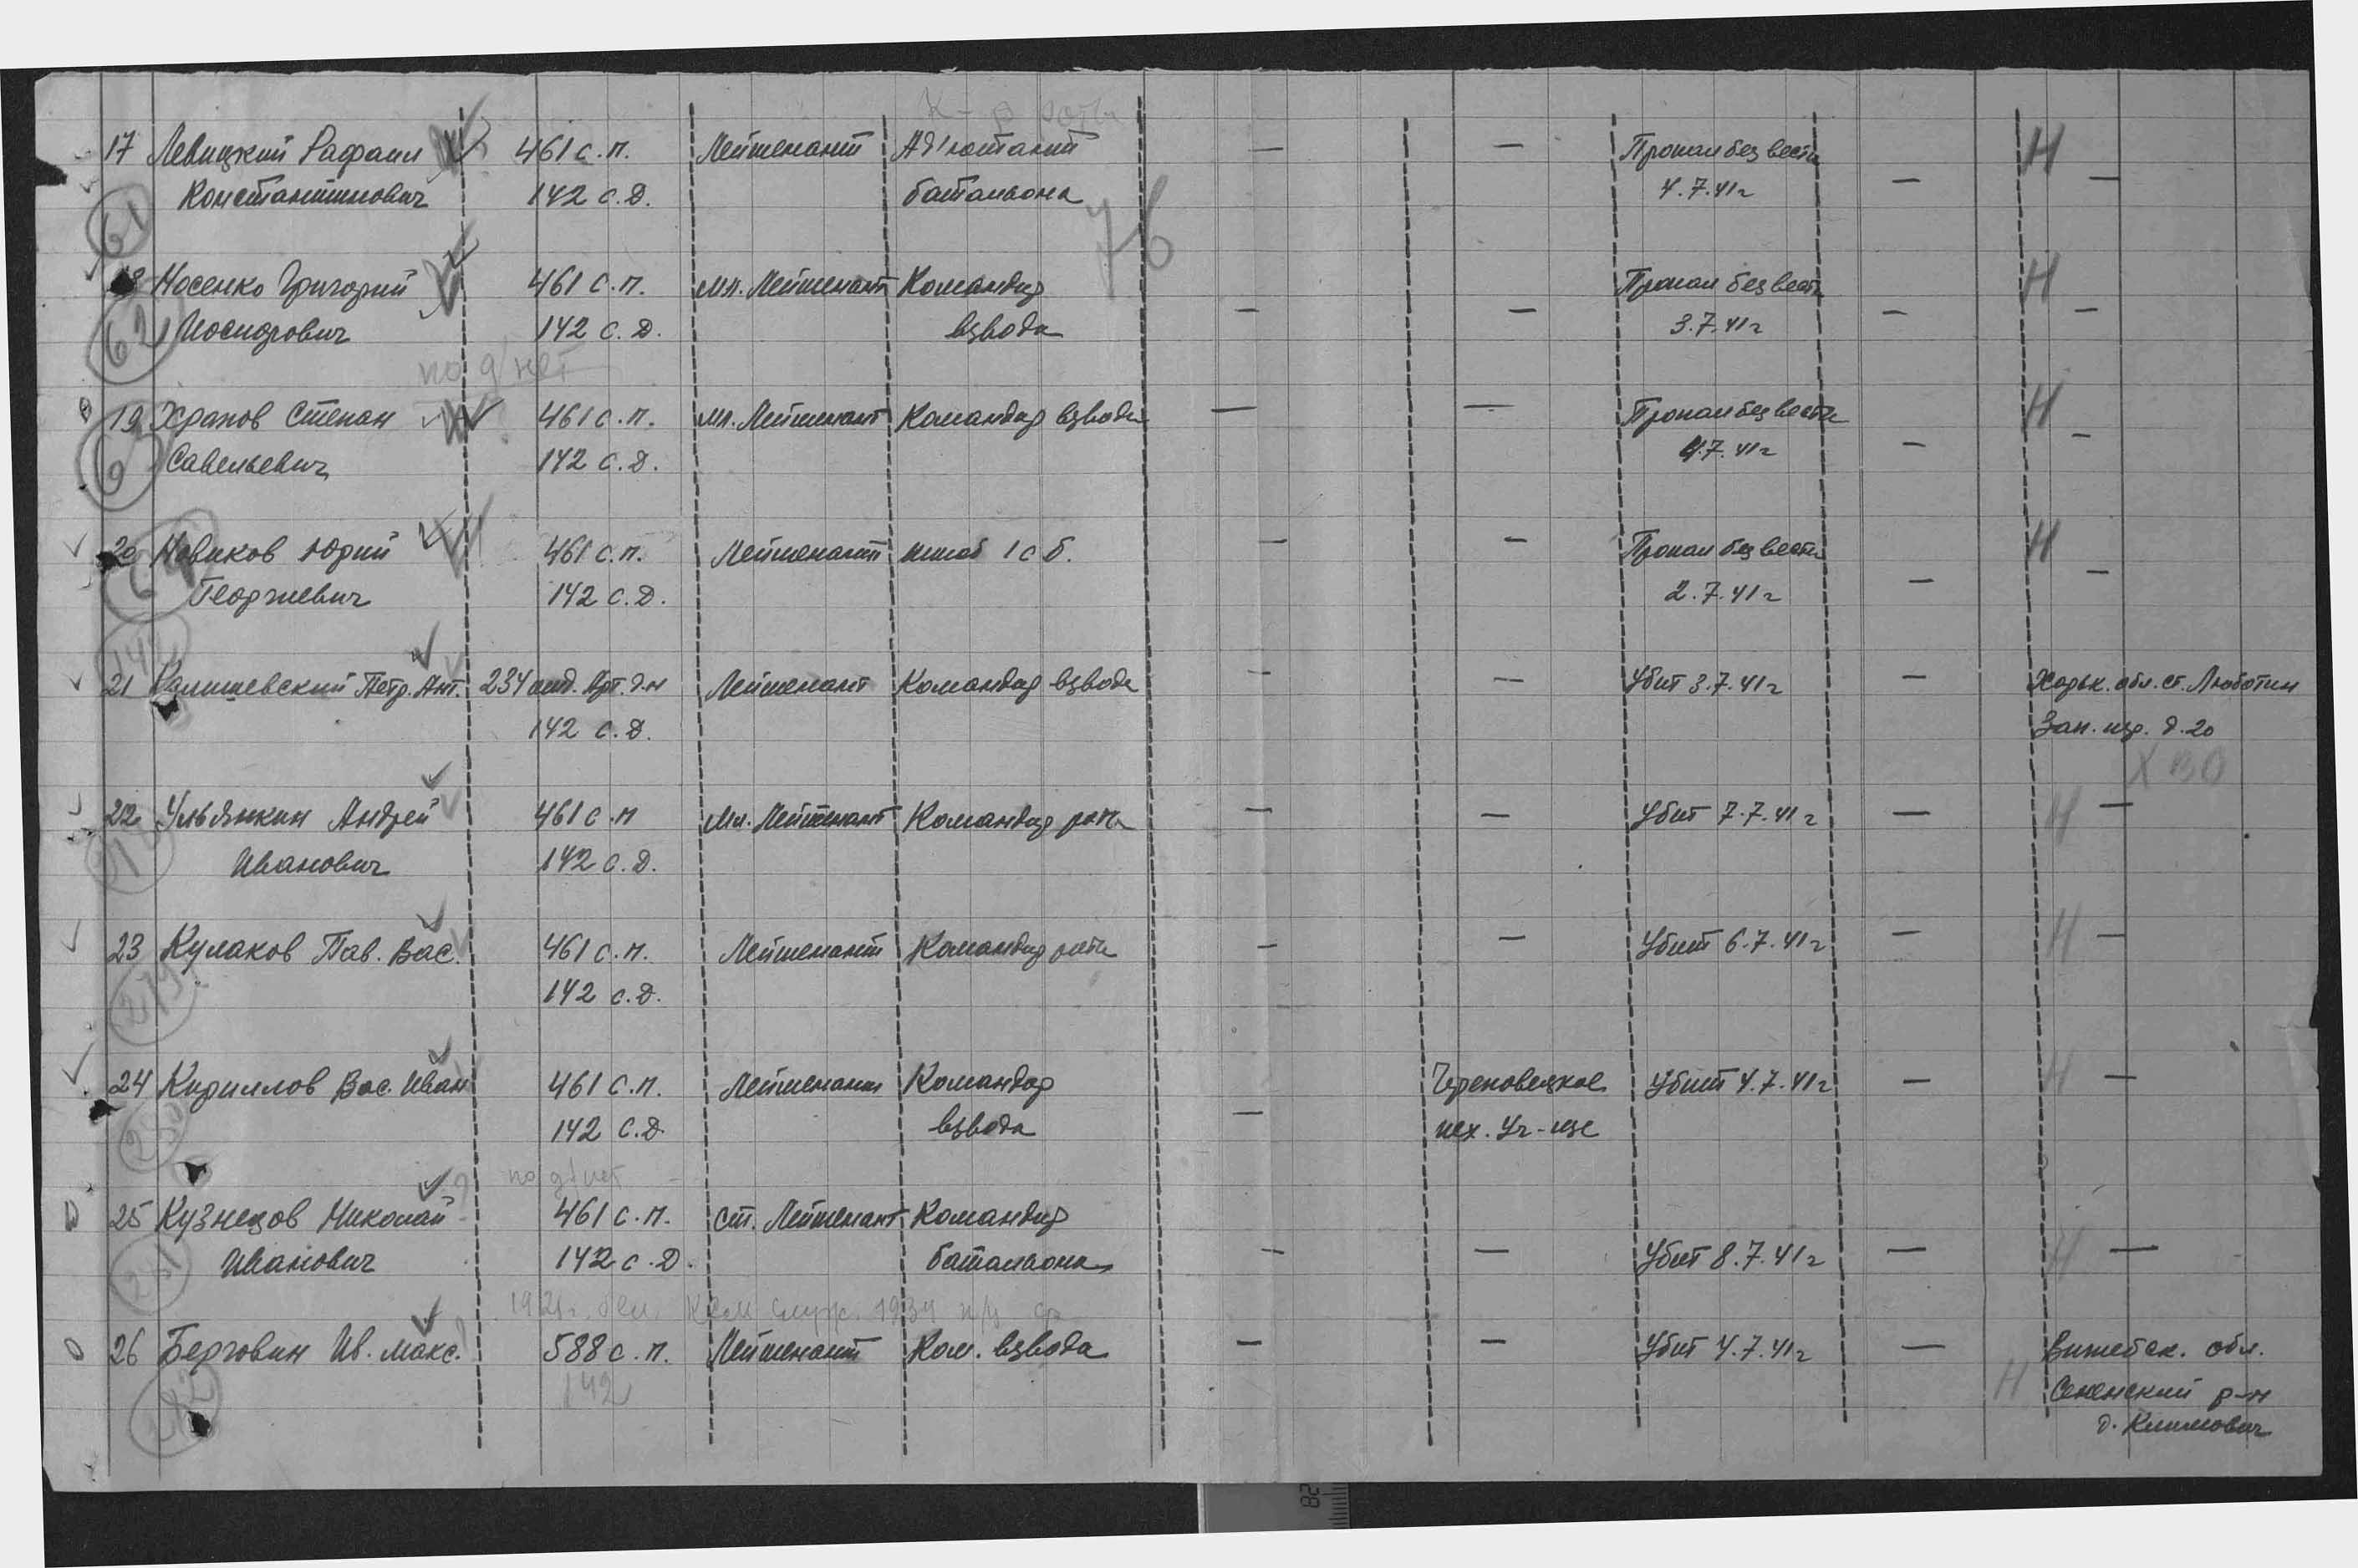 К-р роты
17 Левицкий Рафаил 461 с.п. Лейтенант Адъютант — — Пропал без вести — Н —
Константинович 142 с.д. батальона 4.7.41г
61
76
18 Носенко Григорий 461 с.п. мл. Лейтенант Командир — — Пропал без вести — Н —
Иосифович 142 с.д. взвода 3.7.41г
62
по д/нет
19 Храпов Степан 461 с.п. мл. Лейтенант Командир взвода — — Пропал без вести — Н —
Савельевич 142 с.д. 4.7.41г
20 Новиков Юрий 461 с.п. Лейтенант штаб 1 с б. — — Пропал без вести — Н —
Георгиевич 142 с.д. 2.7.41г
21 Петр. Ант. 234 отд. Арт. д-н Лейтенант Командир взвода — — Убит 3.7.41г — Харьк. обл. ст. Люботин
142 с.д. Зап. д. 20
ХВО
22 Ульянкин Андрей 461 с.п мл. Лейтенант Командир роты — — Убит 7.7.41г — Н —
Иванович 142 с.д.
23 Кулаков Пав. Вас. 461 с.п. Лейтенант Командир роты — — Убит 6.7.41г — Н —
142 с.д.
24 Кириллов Вас. Иван 461 с.п. Лейтенант Командир — Череповецкое Убит 4.7.41г — Н —
142 с.д. взвода пех. Уч-ще
по д/нет
25 Кузнецов Николай 461 с.п. ст. Лейтенант Командир — — Убит 8.7.41г — Н —
Иванович 142 с.д. батальона
26 Берговин Ив. Макс. 588 с.п. Лейтенант Ком. взвода — — Убит 4.7.41г — Витебск. обл.
142 Н Сененский р-н
д. Климович
82